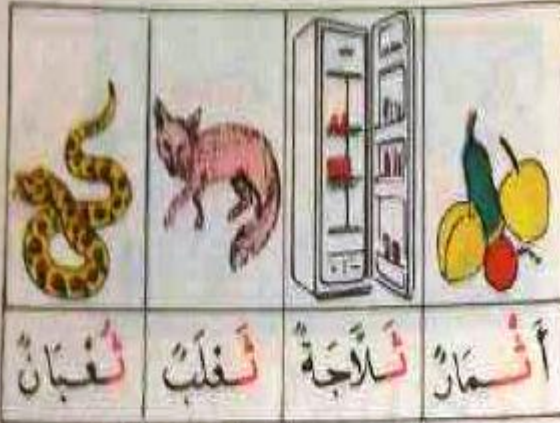 أَثْمَارٌ ثَلَّاجَةٌ ثَعْلَبٌ ثُعْبَانٌ